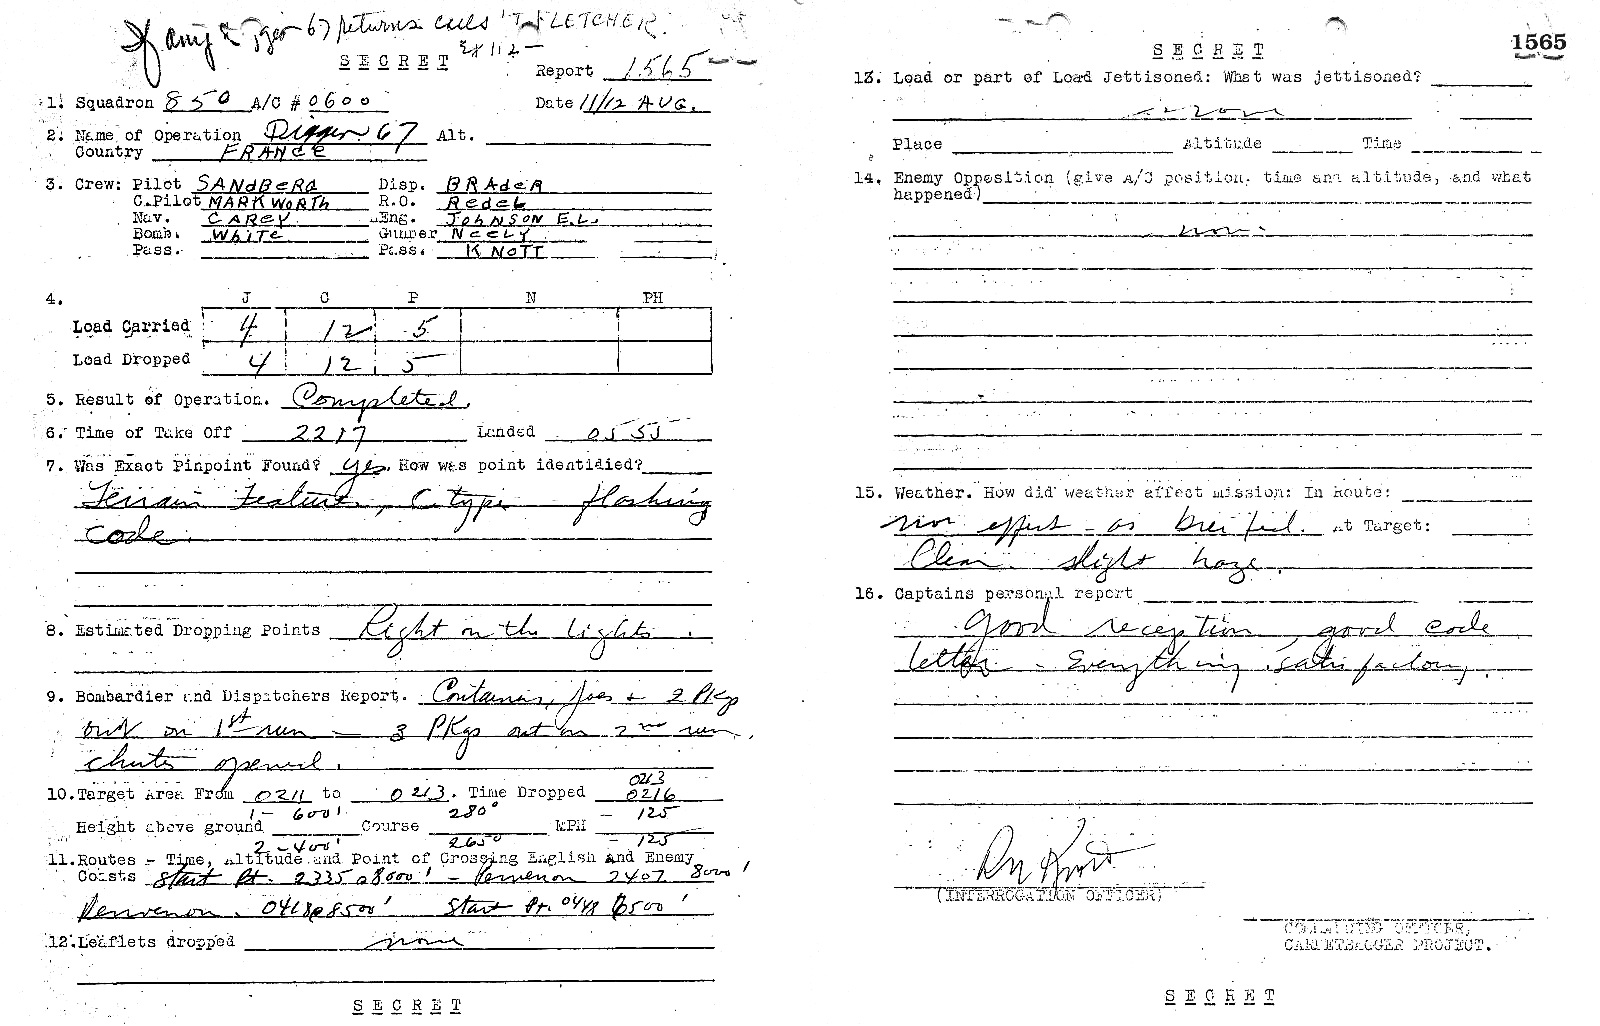 If any Digger 67 returns calls T. FLETCHER.
2X112 —
SECRET
Report 1565
1. Squadron 850 A/C # 0600 Date 11/12 AUG.
2. Name of Operation Digger 67 Alt.
Country FRANCE
3. Crew: Pilot SANDBERG Disp. BRADER
C.Pilot MARKWORTH R.O. REDEL
Nav. CAREY Eng. JOHNSON E.L.
Bomb. WHITE Gunner NEELY
Pass. Pass. KNOTT
4. J C P N PH
Load Carried 4 12 5
Load Dropped 4 12 5
5. Result of Operation. Completed.
6. Time of Take Off 2217 Landed 0555
7. Was Exact Pinpoint Found? yes. How was point identidied?
Terrain Feature, C type flashing
code.
8. Estimated Dropping Points Right on the lights.
9. Bombardier and Dispatchers Report. Containers, Joes + 2 PKgs
out on 1st run — 3 PKgs out on 2nd run,
chutes opened.
0213
10. Target Area From 0211 to 0213. Time Dropped 0216
1 - 600' 280° - 125
Height above ground Course MPH
2 - 400' 265° - 125
11. Routes - Time, Altitude and Point of Crossing English and Enemy
Coasts Start Pt. 2335 @ 8000' - 2407 8000'
0418 @ 8500' Start Pt. 0448 6500'
12. Leaflets dropped none
SECRET
SECRET
1565
13. Load or part of Load Jettisoned: What was jettisoned?
none
Place Altitude Time
14. Enemy Opposition (give A/C position, time and altitude, and what
happened)
none.
15. Weather. How did weather affect mission: In Route:
non effect - as briefed. At Target:
Clear. slight haze.
16. Captains personal report
good reception, good code
letter - Everything satisfactory.
(INTERROGATION OFFICER)
COMMANDING OFFICER,
CARPETBAGGER PROJECT.
SECRET